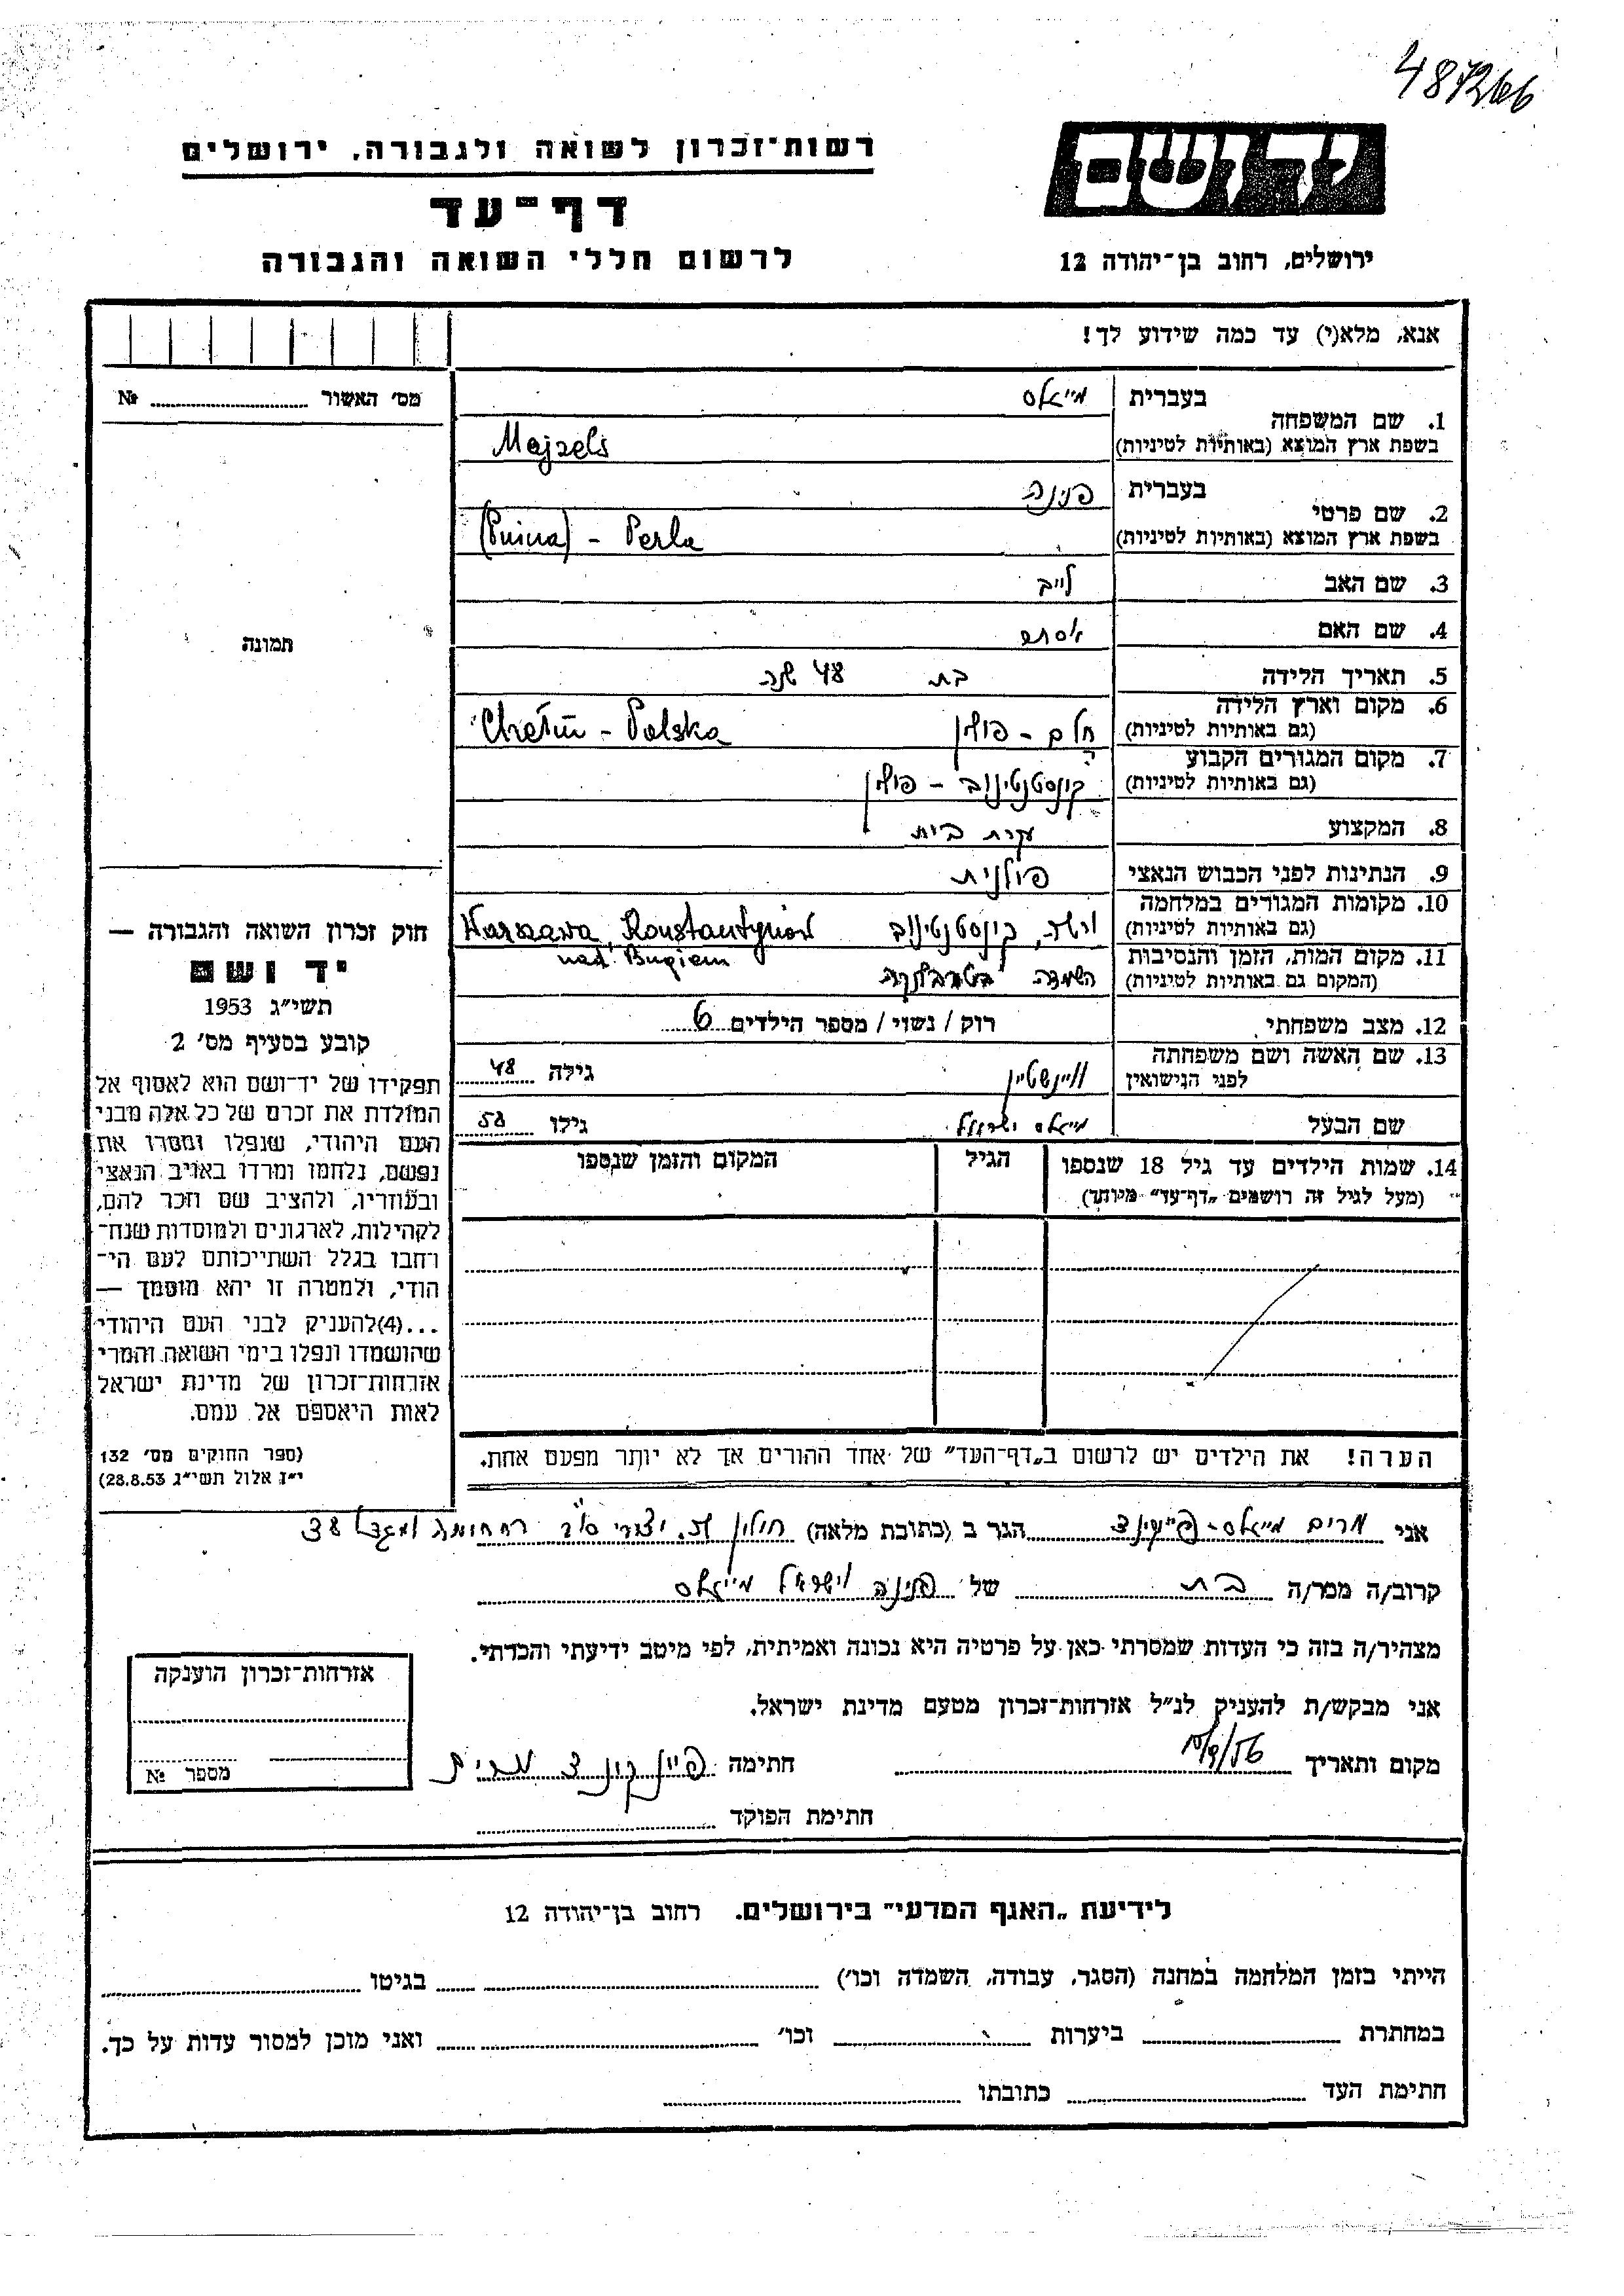 487266
רשות־זכרון לשואה ולגבורה, ירושלים
יד ושם
דף־עד
לרשום חללי השואה והגבורה
ירושלים, רחוב בן־יהודה 12
אנא, מלא(י) עד כמה שידוע לך!
מס' האשור №
1. שם המשפחה
בעברית
מייזלס
בשפת ארץ המוצא (באותיות לטיניות)
Majzels
2. שם פרטי
בעברית
פנינה
בשפת ארץ המוצא (באותיות לטיניות)
(Pnina) - Perla
3. שם האב לייב
4. שם האם אסתר
תמונה
5. תאריך הלידה בת 48 שנה
6. מקום וארץ הלידה
(גם באותיות לטיניות)
חלם - פולין Chełm - Polska
7. מקום המגורים הקבוע
(גם באותיות לטיניות)
קונסטנטינוב - פולין
8. המקצוע עקרת בית
9. הנתינות לפני הכבוש הנאצי פולנית
10. מקומות המגורים במלחמה
(גם באותיות לטיניות)
ורשה, קונסטנטינוב Warszawa, Konstantynów
nad Bugiem
11. מקום המות, הזמן והנסיבות
(המקום גם באותיות לטיניות)
השמדה בטרבלינקה
12. מצב משפחתי רוק / נשוי / מספר הילדים 6
13. שם האשה ושם משפחתה
לפני הנישואין
ויינשטיין גילה 48
שם הבעל מייזלס ישראל גילו 58
14. שמות הילדים עד גיל 18 שנספו הגיל המקום והזמן שנספו
(מעל לגיל זה רושמים „דף־עד" מיוחד)
חוק זכרון השואה והגבורה —
יד ושם
תשי"ג 1953
קובע בסעיף מס' 2
תפקידו של יד־ושם הוא לאסוף אל
המולדת את זכרם של כל אלה מבני
העם היהודי, שנפלו ומסרו את
נפשם, נלחמו ומרדו באויב הנאצי
ובעוזריו, ולהציב שם וזכר להם,
לקהילות, לארגונים ולמוסדות שנח־
רחבו בגלל השתייכותם לעם הי־
הודי, ולמטרה זו יהא מוסמך —
...(4)להעניק לבני העם היהודי
שהושמדו ונפלו בימי השואה והמרי
אזרחות־זכרון של מדינת ישראל
לאות היאספם אל עמם.
(ספר החוקים מס' 132
י"ז אלול תשי"ג 28.8.53)
הערה! את הילדים יש לרשום ב„דף־העד" של אחד ההורים אך לא יותר מפעם אחת.
אני מרים מייזלס- הגר ב (כתובת מלאה) חולון 38
קרוב/ה מכר/ה בת של פנינה וישראל מייזלס
מצהיר/ה בזה כי העדות שמסרתי כאן על פרטיה היא נכונה ואמיתית, לפי מיטב ידיעתי והכרתי.
אני מבקש/ת להעניק לנ"ל אזרחות־זכרון מטעם מדינת ישראל.
מקום ותאריך חתימה מרים
חתימת הפוקד
אזרחות־זכרון הוענקה
מספר №
לידיעת „האגף המדעי" בירושלים. רחוב בן־יהודה 12
הייתי בזמן המלחמה במחנה (הסגר, עבודה, השמדה וכו') בגיטו
במחתרת ביערות וכו' ואני מוכן למסור עדות על כך.
חתימת העד כתובתו